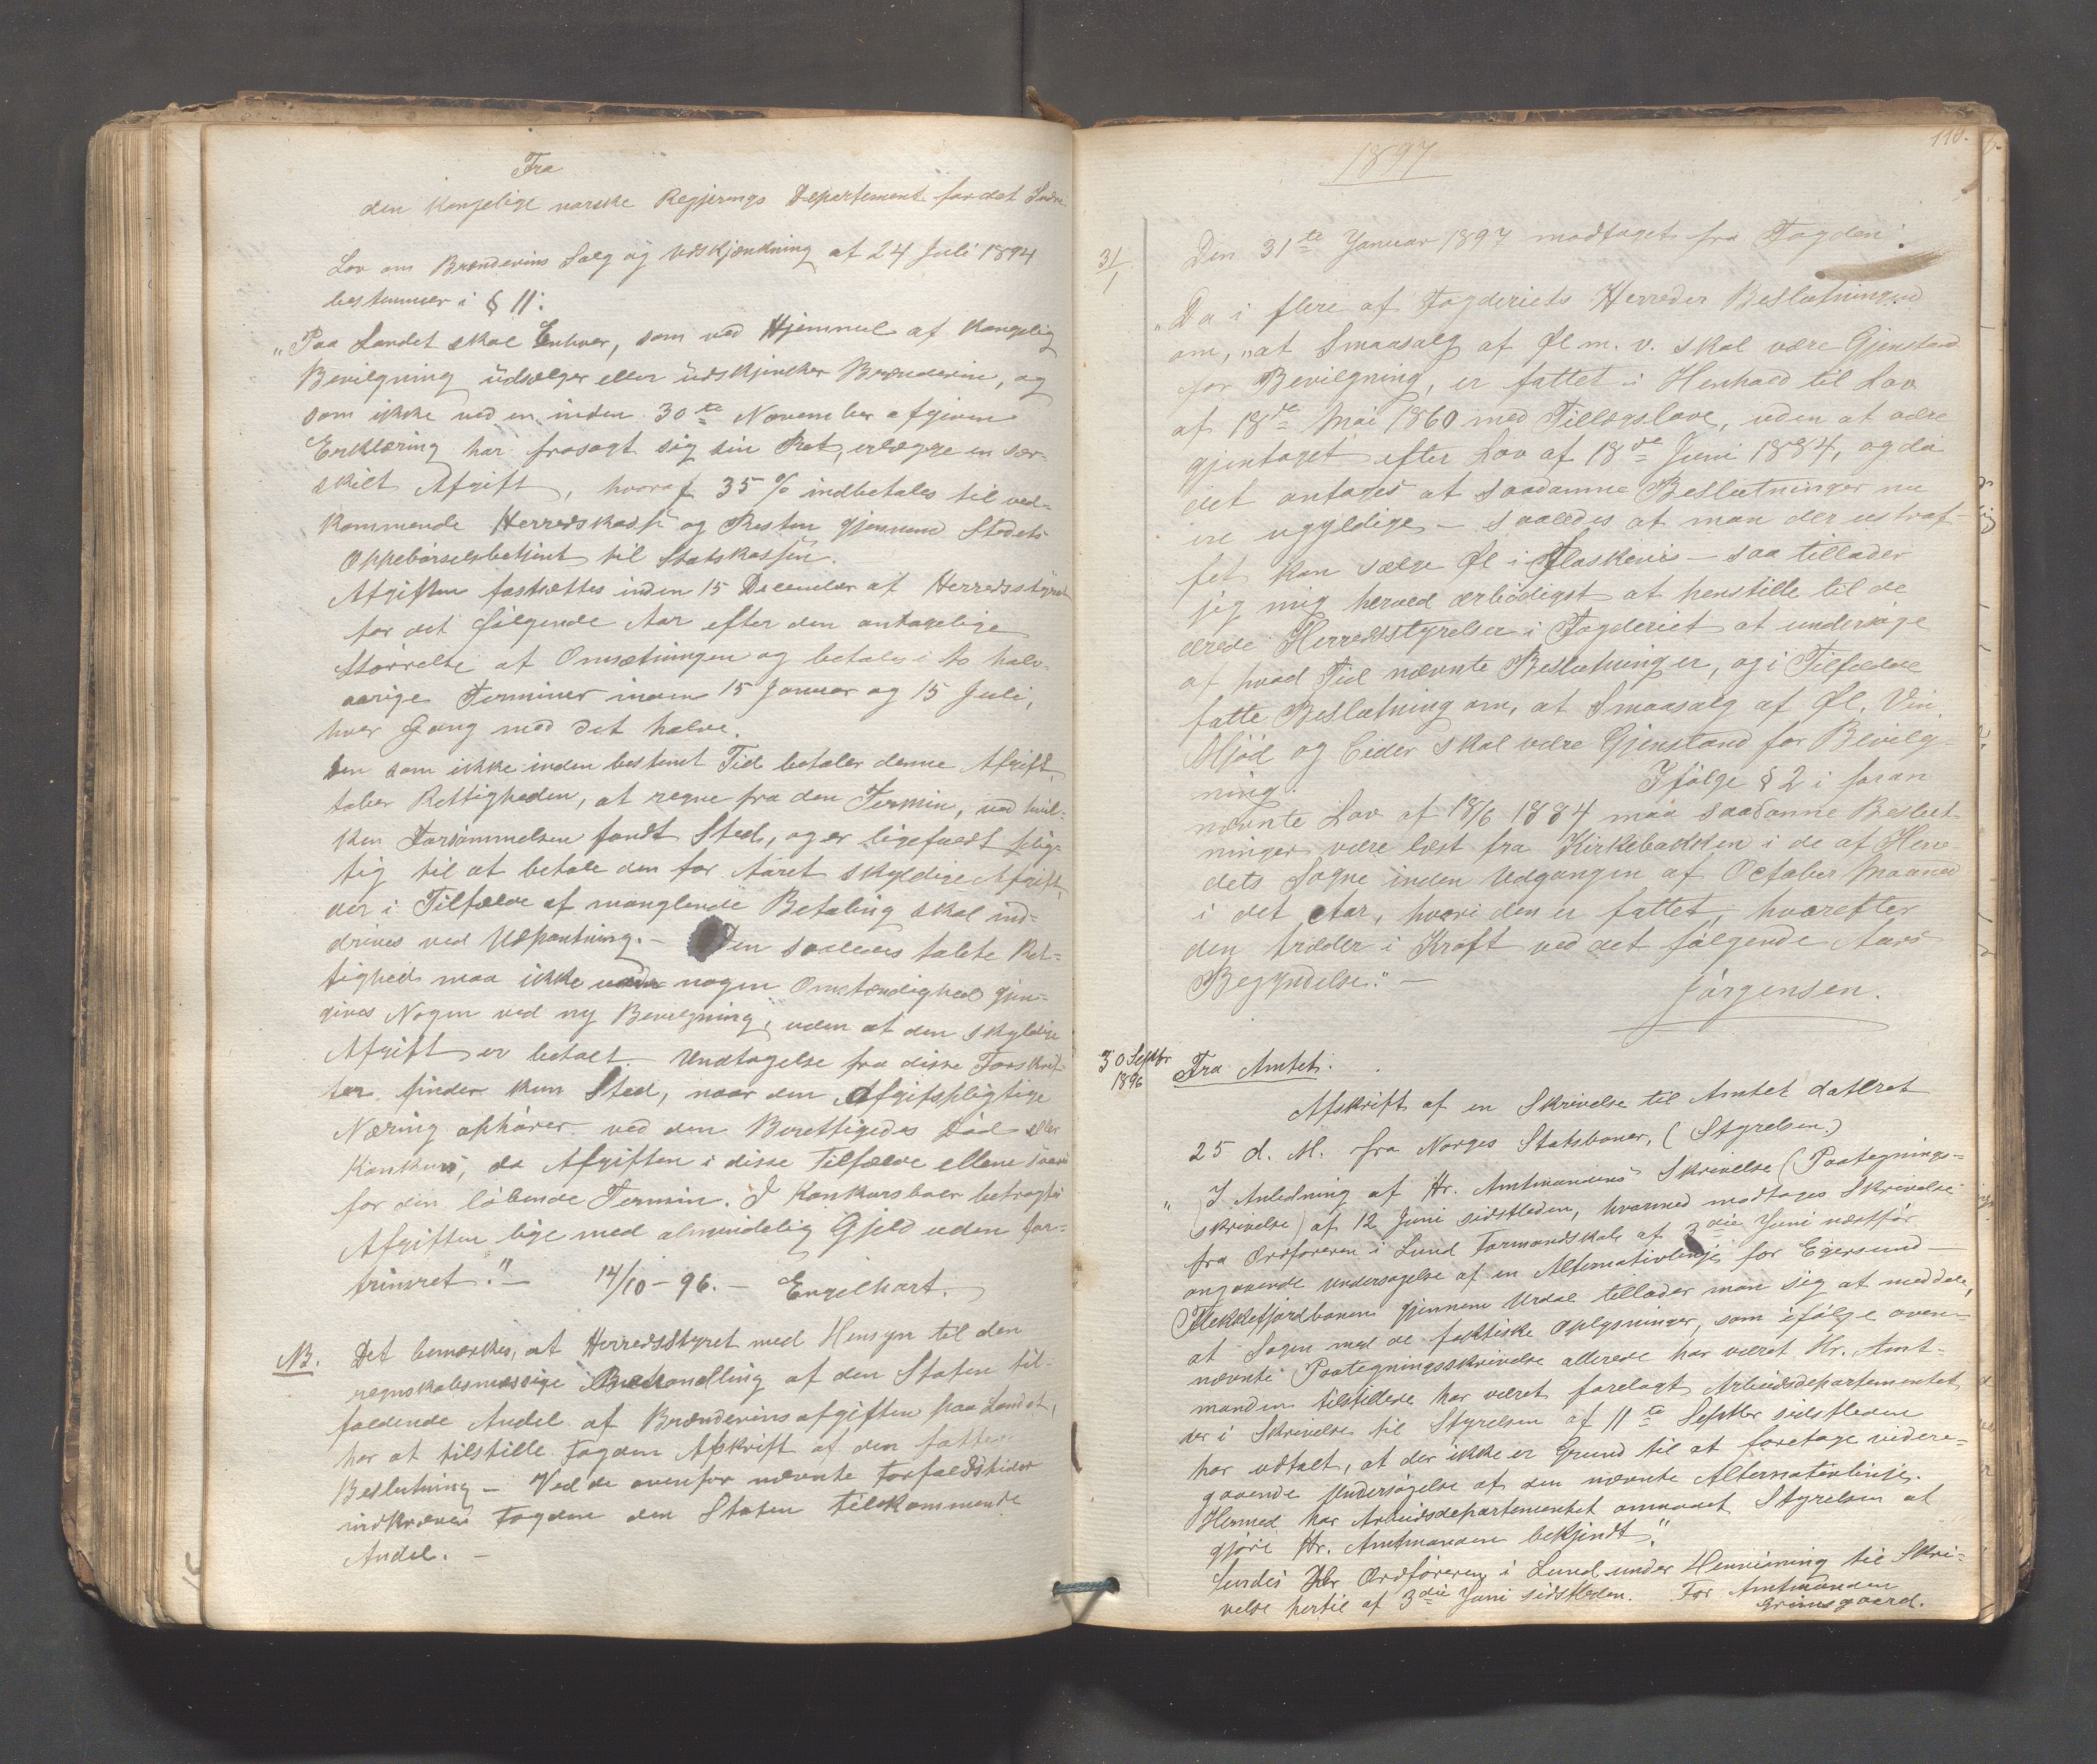 Fra
den kongelige norske Regjerings Departement for det Indre
Lov om Brændevins Salg og Udskjænkning af 24 Juli 1894
bestemmer i § 11:
"Paa Landet skal Enhver, som ved Hjemmel af kongelig
Bevilgning üdsælger eller üdskjenker Brændevin, og
som ikke ved en inden 30te November afgiven
Erklæring har frasagt sig sin Ret, erlægge en sær-
skilt Afgift, hvoraf 35 % indbetales til ved-
kommende Herredskasse og Resten gjennem Stedets
Oppebørselsbetjent til Statskassen.
Afgiften fastsættes inden 15 December af Herredsstyret
for det følgende Aar efter den antagelige
Størrelse af Omsætningen og betales i to halv-
aarige Terminer inden 15 Januar og 15 Juli,
hver Gang med det halve.
Den som ikke inden bestemt Tid betaler denne Afgift,
taber Rettigheden, at regne fra den Termin, ved hvil-
ken Forsømmelsen fandt Sted, og er ligefuldt pligt-
tig til at betale den for Aaret skyldige Afgift,
der i Tilfælde af manglende Betaling skal ind-
drives ved Udpantning. - Den saaledes tabte Ret-
tighed maa ikke under nogen Omstændighed gjen-
gives Nogen ved ny Bevilgning, uden at den skyldige
Afgift er betalt. Undtagelse fra disse Forskrif-
ter finder kun Sted, naar den Afgiftspligtige
Næring ophører ved den Berettigedes Død eller
Konkurs, da Afgiften i disse Tilfælde ellene svares
for den løbende Termin. I Konkursboer betragtes
Afgiften lige med almindelig Gjeld uden for-
trinsret." - 14/10 - 96. - Engelhart.
NB. Det bemærkes, at Herredsstyret med Hensyn til den
regnskabsmæssige Behandling af den Staten til-
faldende Andel af Brændevinsafgiften paa Landet,
har at tilstille Fogden Afskrift af den fattede
Beslutning - Ved de ovenfor nævnte Forfaldstider
indkræver Fogden den Staten tilkommende
Andel. -
110.
1897
31/1 Den 31te Januar 1897 modtaget fra Fogden:
"Da i flere af Fogderiets Herreder Beslutninger
om, "at Smaasalg af Øl m. v. skal være Gjenstand
for Bevilgning, er fattet i Henhold til Lov
af 18de Mai 1860 med Tillægslove, uden at være
gjentaget efter Lov af 18de Juni 1884, og da
det antages at saadanne Beslutninger nu
ere ugyldige - saaledes at man der ustraf-
fet kan sælge Øl i Flaskevis - saa tillader
jeg mig herved ærbødigst at henstille til de
ærede Herredsstyrelser i Fogderiet at undersøge
af hvad Tid nævnte Beslutninger, og i Tilfælde
fatte Beslutning om, at Smaasalg af Øl, Vin
Mjød og Cider skal være Gjenstand for Bevilg-
ning. Ifølge § 2 i foran
nævnte Lov af 18/6 1884 maa saadanne Beslut-
ninger være læst fra Kirkebakken i de af Herre-
dets Sogne inden Udgangen af October Maaned
i det Aar, hvori den er fattet, hvorefter
den træder i Kraft ved det følgende Aars
Begyndelse." -
Jørgensen.
30 Septbr
1896 Fra Amtet:
Afskrift af en Skrivelse til Amtet dateret
25 d. M. fra Norges Statsbaner, (Styrelsen.)
"I Anledning af Hr. Amtmandens Skrivelse (Paategnings-
skrivelse) af 12 Juni sidstleden, hvormed modtoges Skrivelse
fra Ordføreren i Lund Formandskab af 3die Juni næstfør
angaaende Undersøgelse af en Alternativlinje for Egersund-
Flekkefjordbanen gjennem Urdal tillader man sig at meddele,
at Sagen med de faktiske Oplysninger, som ifølge oven-
nævnte Paategningsskrivelse allerede har været Hr. Amt-
manden tilstillede har været forelagt Arbeidsdepartementet
der i Skrivelse til Styrelsen af 11te Septbr sidstleden
har udtalt, at der ikke er Grund til at foretage videre-
gaaende Undersøgelse af den nævnte Alternativlinje.
Hermed har Arbeidsdepartementet anmodet Styrelsen at
gjøre Hr. Amtmanden bekjendt."
Sendes Hr Ordføreren i Lund under Henvisning til Skri-
velse hertil af 3die Juni sidstleden. For Amtmanden
Grimsgaard.